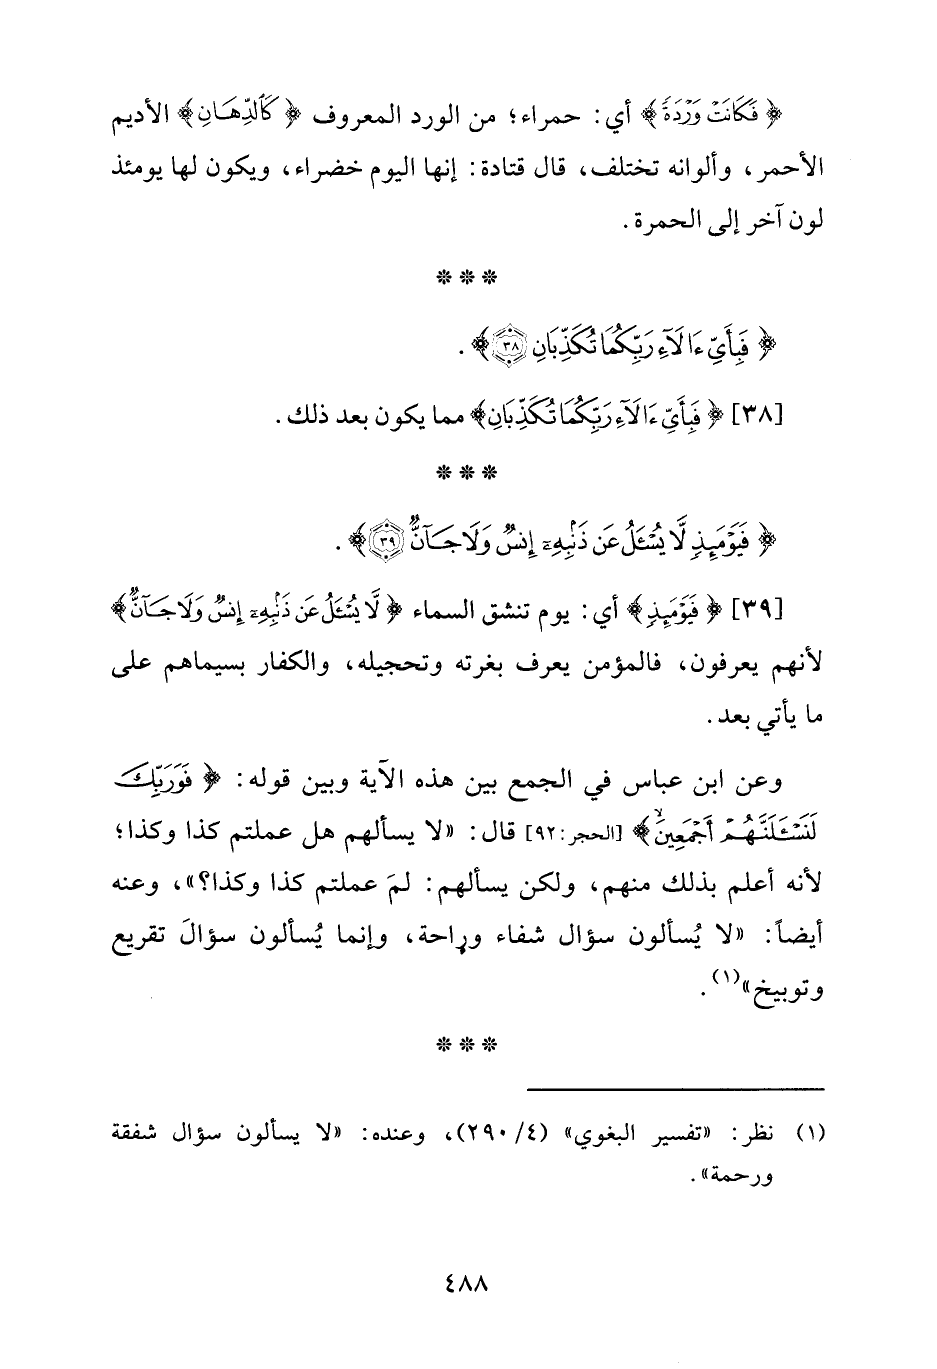 ﴿ فَكَانَتْ وَرْدَةً ﴾ أي: حمراء؛ من الورد المعروف ﴿ كَالدِّهَانِ ﴾ الأديم
الأحمر، وألوانه تختلف، قال قتادة: إنها اليوم خضراء، ويكون لها يومئذ
لون آخر إلى الحمرة.
* * *
﴿ فَبِأَيِّ ءَالَآءِ رَبِّكُمَا تُكَذِّبَانِ ٣٨ ﴾.
[٣٨] ﴿ فَبِأَيِّ ءَالَآءِ رَبِّكُمَا تُكَذِّبَانِ ﴾ مما يكون بعد ذلك.
* * *
﴿ فَيَوْمَئِذٍ لَّا يُسْـَٔلُ عَن ذَنۢبِهِۦٓ إِنسٌ وَلَا جَآنٌّ ٣٩ ﴾.
[٣٩] ﴿ فَيَوْمَئِذٍ ﴾ أي: يوم تنشق السماء ﴿ لَّا يُسْـَٔلُ عَن ذَنۢبِهِۦٓ إِنسٌ وَلَا جَآنٌّ ﴾
لأنهم يعرفون، فالمؤمن يعرف بغرته وتحجيله، والكفار بسيماهم على
ما يأتي بعد.
وعن ابن عباس في الجمع بين هذه الآية وبين قوله: ﴿ فَوَرَبِّكَ
لَنَسْـَٔلَنَّهُمْ أَجْمَعِينَ ﴾ [الحجر: ٩٢] قال: «لا يسألهم هل عملتم كذا وكذا؛
لأنه أعلم بذلك منهم، ولكن يسألهم: لمَ عملتم كذا وكذا؟»، وعنه
أيضاً: «لا يُسألون سؤال شفاء وراحة، وإنما يُسألون سؤالَ تقريع
وتوبيخ»(١).
* * *
(١) نظر: «تفسير البغوي» (٤/ ٢٩٠)، وعنده: «لا يسألون سؤال شفقة
ورحمة».
٤٨٨